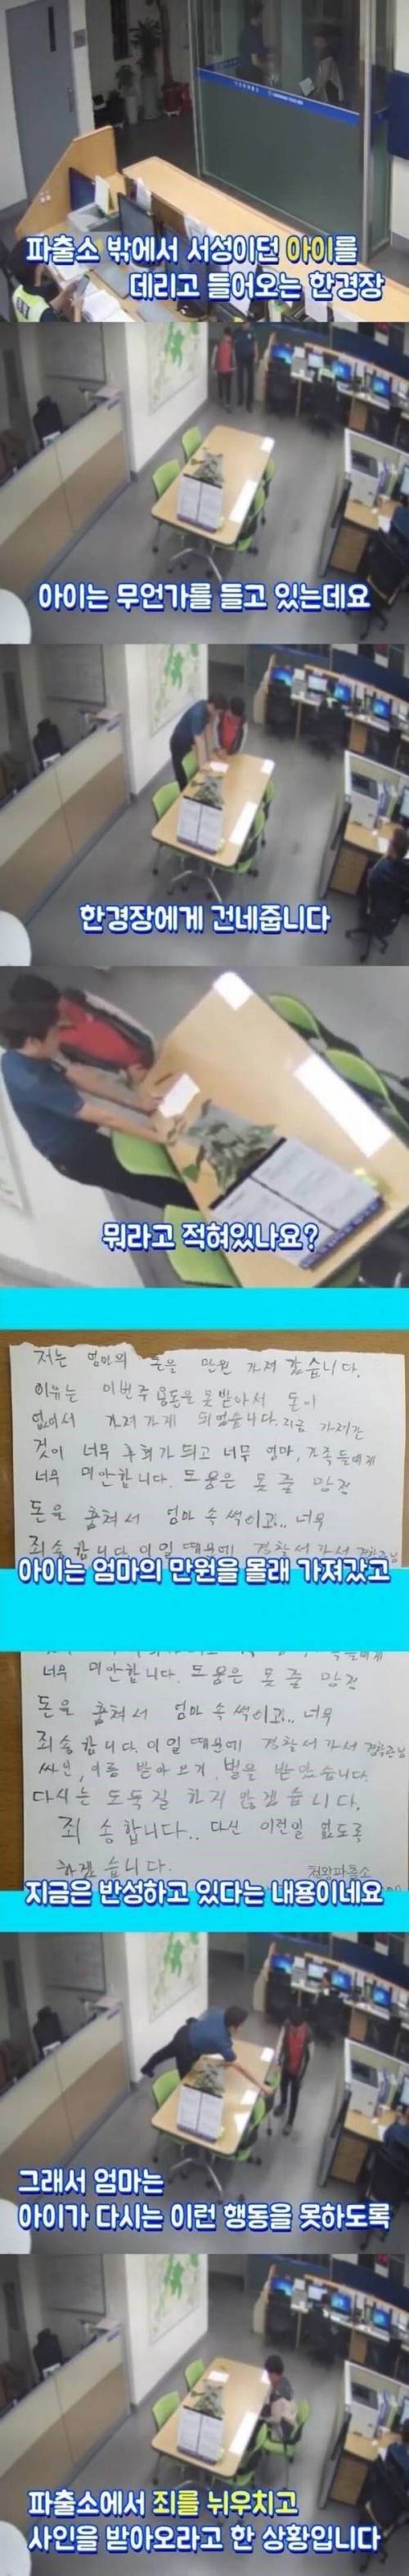 파출소 밖에서 서성이던 아이를
데리고 들어오는 한경장
아이는 무언가를 들고 있는데요
한경장에게 건네줍니다
뭐라고 적혀있나요?
저는 엄마의 돈을 만원 가져 갔습니다.
이유는 이번주 용돈을 못받아서 돈이
없어서 가져가게 되었습니다. 지금 가져간
것이 너무 후회가 되고 너무 엄마, 가족들에게
너무 미안합니다. 도움은 못 줄 망정
돈을 훔쳐서 엄마 속 썩이고... 너무
죄송합니다. 이일 때문에 경찰서 가서 경찰관님
아이는 엄마의 만원을 몰래 가져갔고
너무 미안합니다. 도움은 못 줄 망정
돈을 훔쳐서 엄마 속 썩이고... 너무
죄송합니다. 이일 때문에 경찰서 가서 경찰관님
싸인, 이름 받아 오기, 벌을 받았습니다.
다시는 도둑질 하지 않겠습니다.
죄송합니다.. 다신 이런일 없도록
하겠습니다.
천왕파출소
지금은 반성하고 있다는 내용이네요
그래서 엄마는
아이가 다시는 이런 행동을 못하도록
파출소에서 죄를 뉘우치고
사인을 받아오라고 한 상황입니다